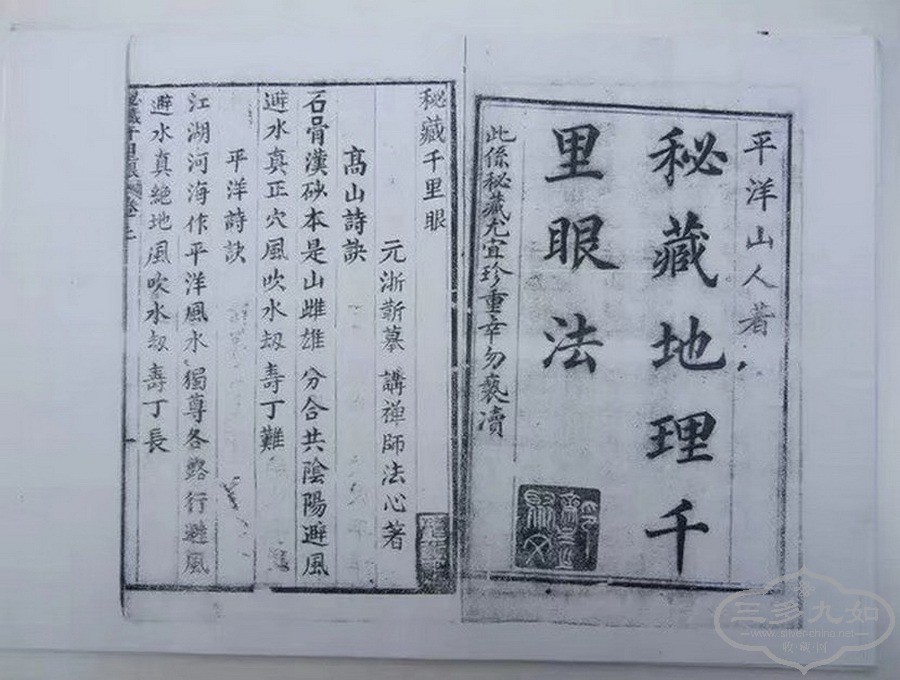 平洋山人著
秘藏地理千
里眼法
此係秘藏尤宜珍重幸勿褻瀆
秘藏千里眼
元浙蘄摹講禅師法心著
髙山詩訣
石骨漢砂本是山雌雄分合共陰陽避風
避水真正穴風吹水刼壽丁難
平洋詩訣
江湖河海作平洋風水獨尊各路行避風
避水真絶地風吹水刼壽丁長
三多九如
www.silver-china.net
收藏網